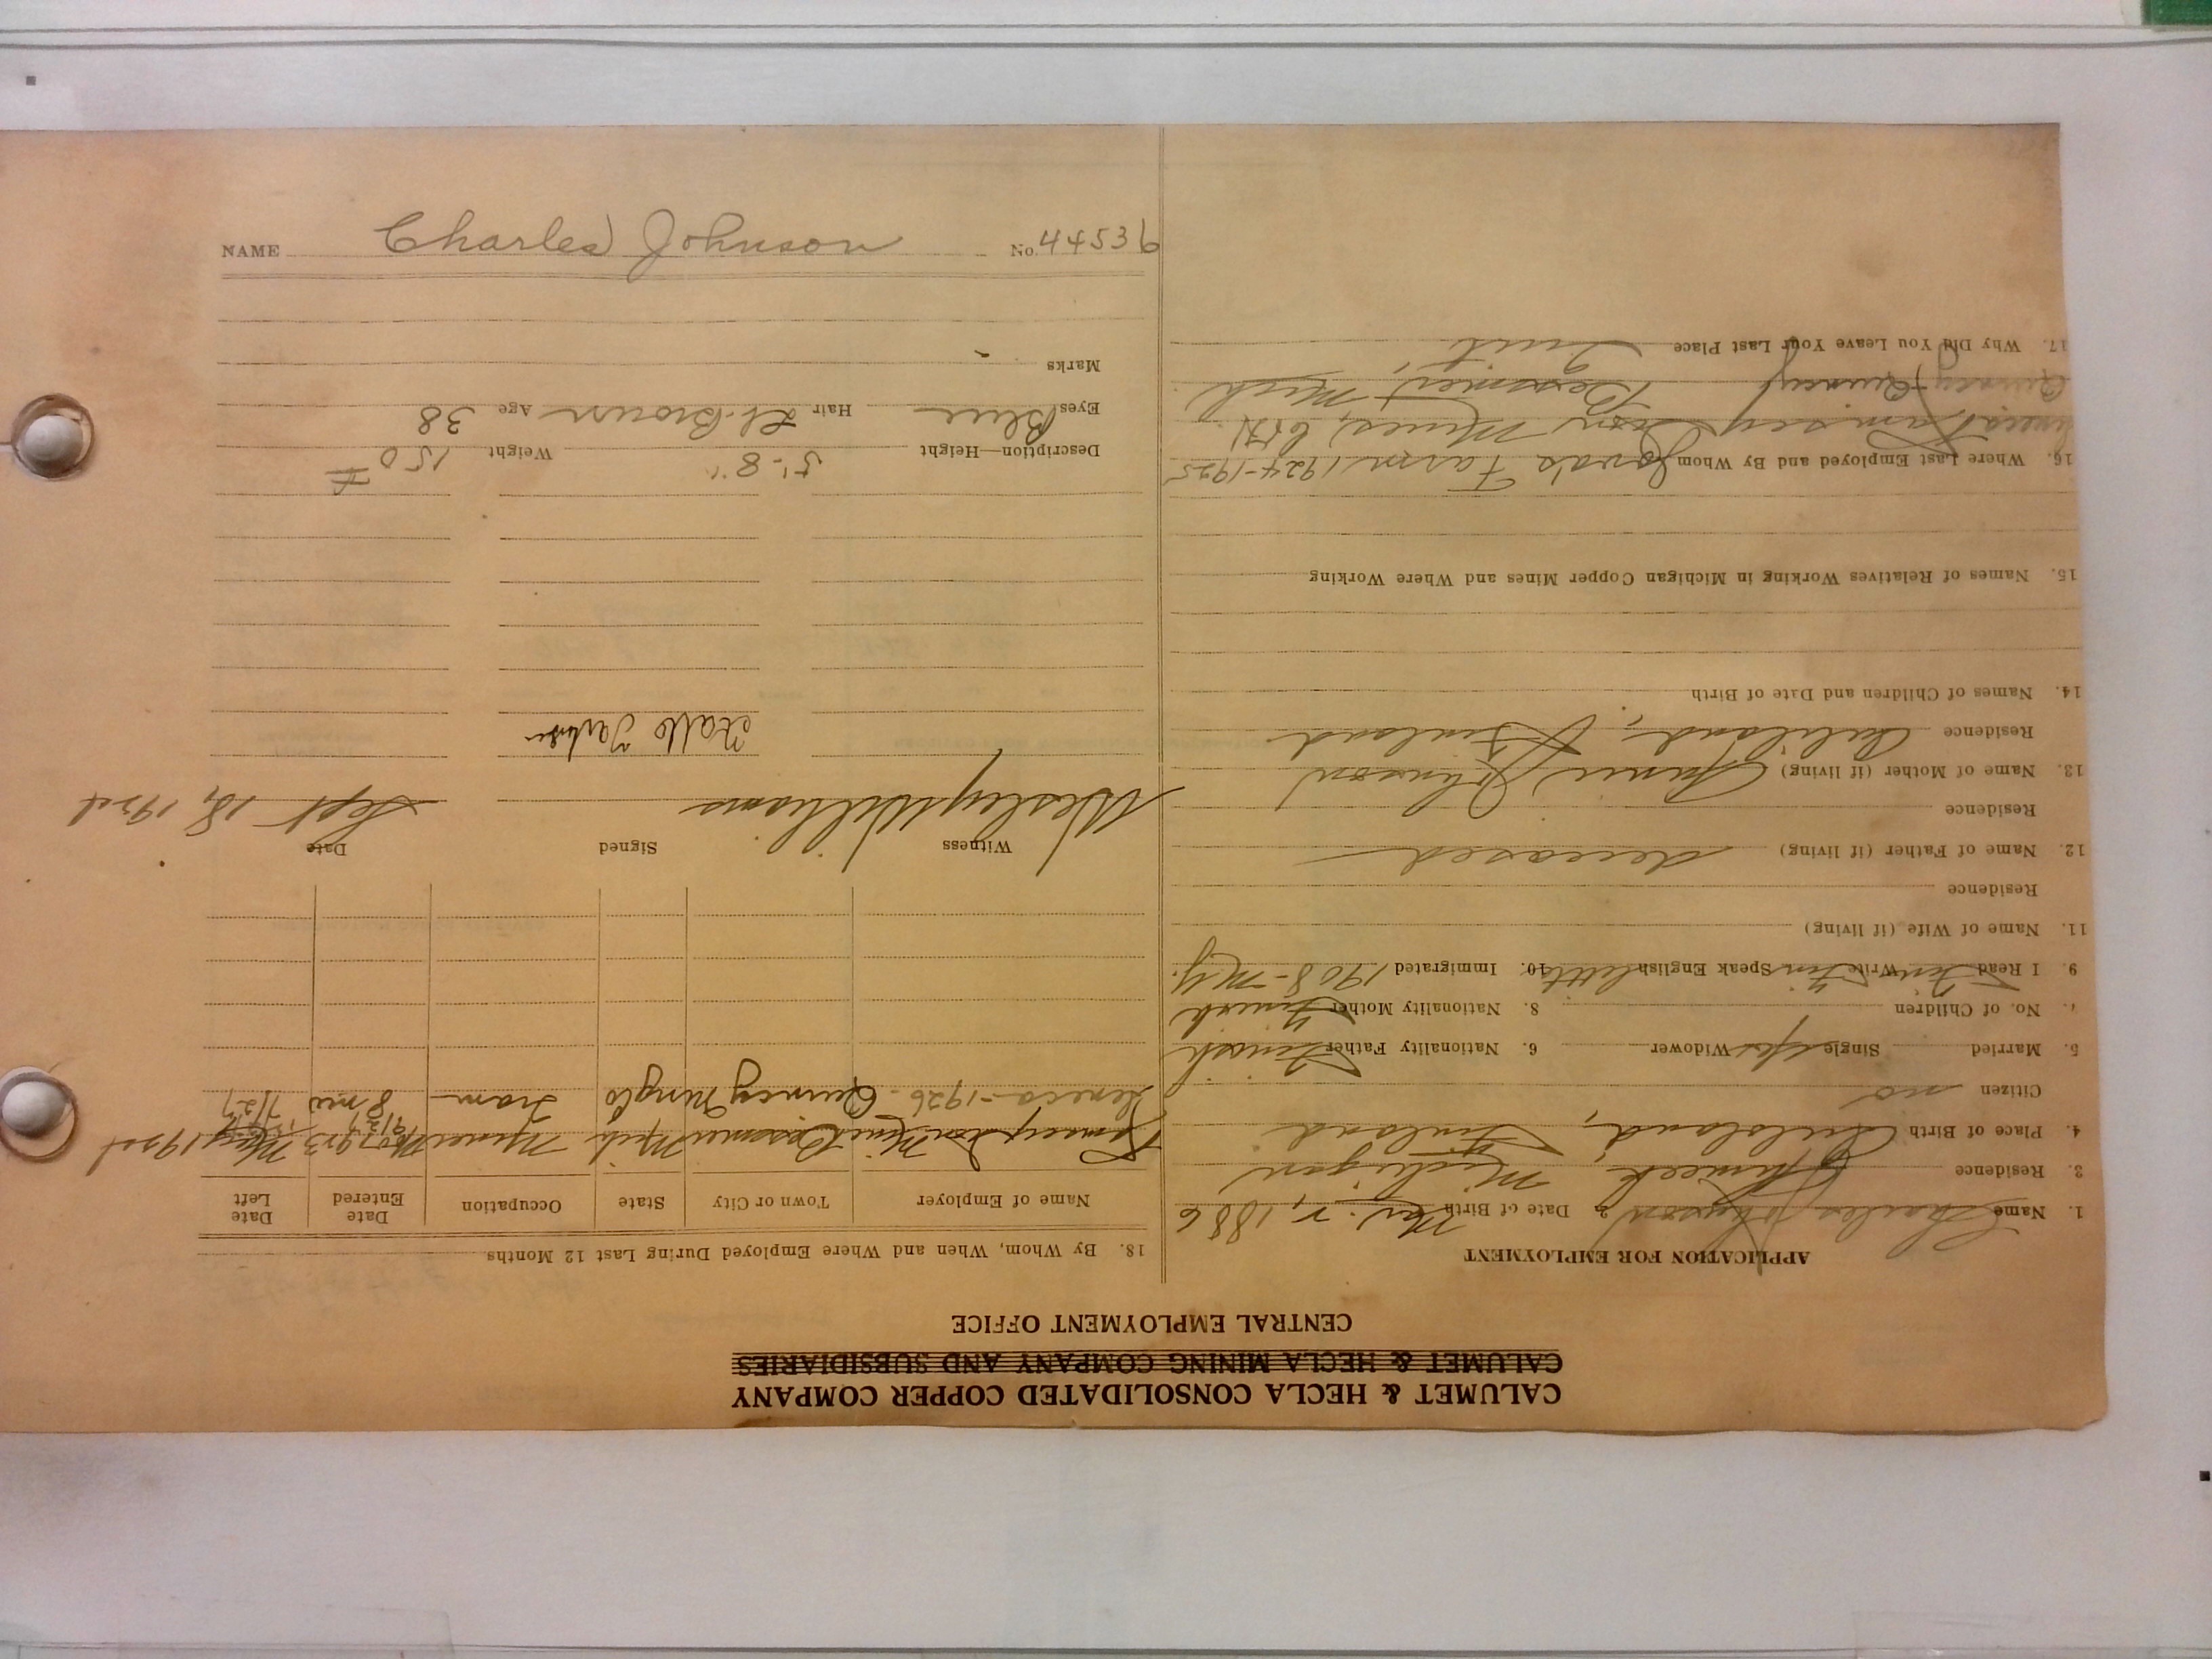 CALUMET & HECLA CONSOLIDATED COPPER COMPANY
CALUMET & HECLA MINING COMPANY AND SUBSIDIARIES
CENTRAL EMPLOYMENT OFFICE
APPLICATION FOR EMPLOYMENT
1. Name Charles Johnson 2. Date of Birth 1886
3. Residence Ahmeek Michigan
4. Place of Birth Finland
Citizen no
5. Married Single yes Widower 6. Nationality Father Finish
7. No. of Children 8. Nationality Mother Finish
9. I Read Finn Write Finn Speak English little 10. Immigrated 1908 - N.Y.
11. Name of Wife (if living)
Residence
12. Name of Father (if living) deceased
Residence
13. Name of Mother (if living) Annie Johnson
Residence Finland
14. Names of Children and Date of Birth
15. Names of Relatives Working in Michigan Copper Mines and Where Working
16. Where Last Employed and By Whom Farm 1924-1925
Seneca Ramsey Iron Mines
Quincy Quincy Bessemer Mich
17. Why Did You Leave Your Last Place Quit
18. By Whom, When and Where Employed During Last 12 Months
Name of Employer Town or City State Occupation Date Entered Date Left
Ramsey Iron Mines Bessemer Mich Miner Nov 1923 May 1924
Seneca - 1926 - Quincy Tram 8 mo 7/27
Witness Signed Date
Wesley Williams Sept 18, 1924
Description—Height 5'-8" Weight 150 #
Eyes Blue Hair Lt. Brown Age 38
Marks -
NAME Charles Johnson No. 44536